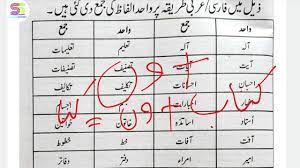 ذیل میں فارسی/عربی طریقہ پر واحد الفاظ کی جمع دی گئی ہیں۔
واحد جمع واحد جمع
آلہ آلات تعلیم تعلیمات
آیت تصنیف
احسان احسانات تکلیف تکالیف
اخبارات
استاد اساتذہ خاتون خواتین
آفت آفات خط خطوط
امیر امراء دفتر دفاتر
کتاب + وں = کتا